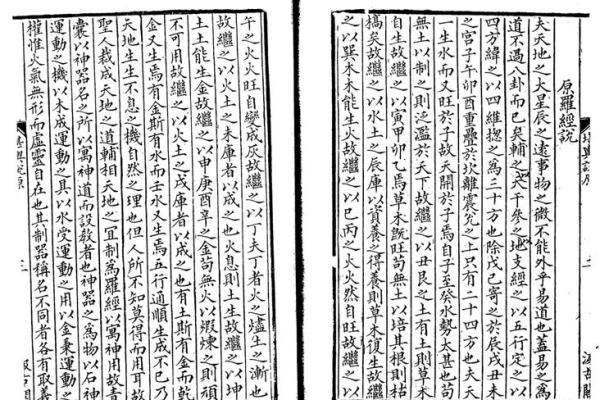 原羅經說
夫天地之大星辰之遠事物之微不能外乎易道也蓋易之爲
道不過八卦而已矣輔之天干參之地支經之以五行定之以
四方緯之以四維揔之爲三十方也除戊己寄之於辰戌丑未
之宮子午卯酉重疊於坎離震兌之上只有二十四方也夫天
一生水而又旺於子故天開於子焉自子至癸水勢太甚也苟
無土以制之則泛濫於天下故繼之以丑艮之土有土則草木
自生故繼之以寅甲卯乙焉草木旣旺苟無土以培其根則枯
槁矣故繼之以水土之辰庫以資養之得養則草木復生故繼
之以巽木木能生火故繼之以巳丙之火火然自旺故繼之以
午之火火旺自變成灰故繼之以丁夫丁者火之燼土之漸也
故繼之以火土之未庫者以成之也火息則土生故繼之以坤
土土能生金故繼之以申庚酉辛之金苟無火以煆煉之則頑
不可用故繼之以火土之戌庫者以成之也有土斯有金而乾
金又生焉有金斯有水而壬水又生焉五行通順生成不已乃
天地生生不息之機自然之理也但人所不知莫得而用耳故
聖人裁成天地之道輔相天地之宜制爲羅經以寓神用故音
囊以神器名之所以寓神道而設敎者也神器之爲物以石神
運動之機以木成運動之具以水受運動之用以金秉運動之
權惟火氣無形而虛靈自在也其制器稱名不同者各有取義